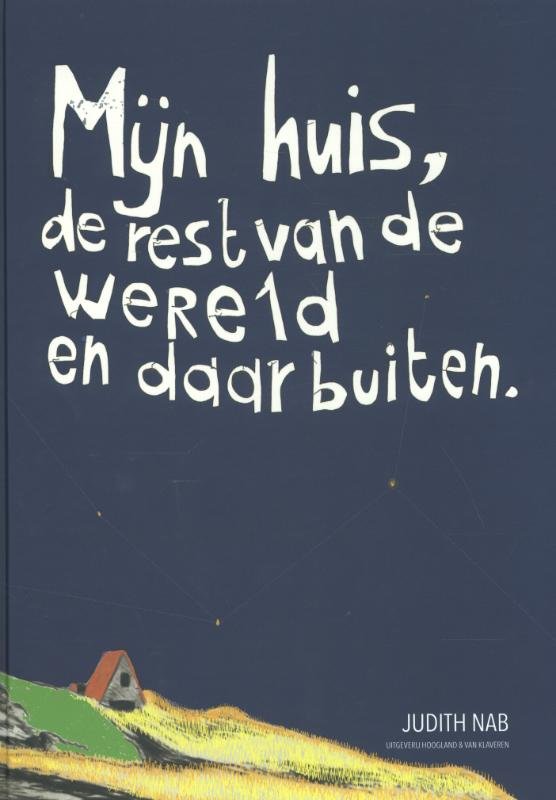 Mijn huis,
de rest van de
wereld
en daarbuiten.
JUDITH NAB
UITGEVERIJ HOOGLAND & VAN KLAVEREN